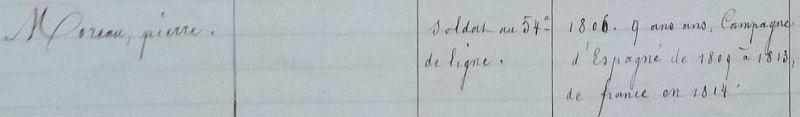 Moreau, pierre.
soldat au 54e
de ligne.
1806. 9 ans ans, Campagne
d'Espagne de 1809 à 1813,
de france en 1814.